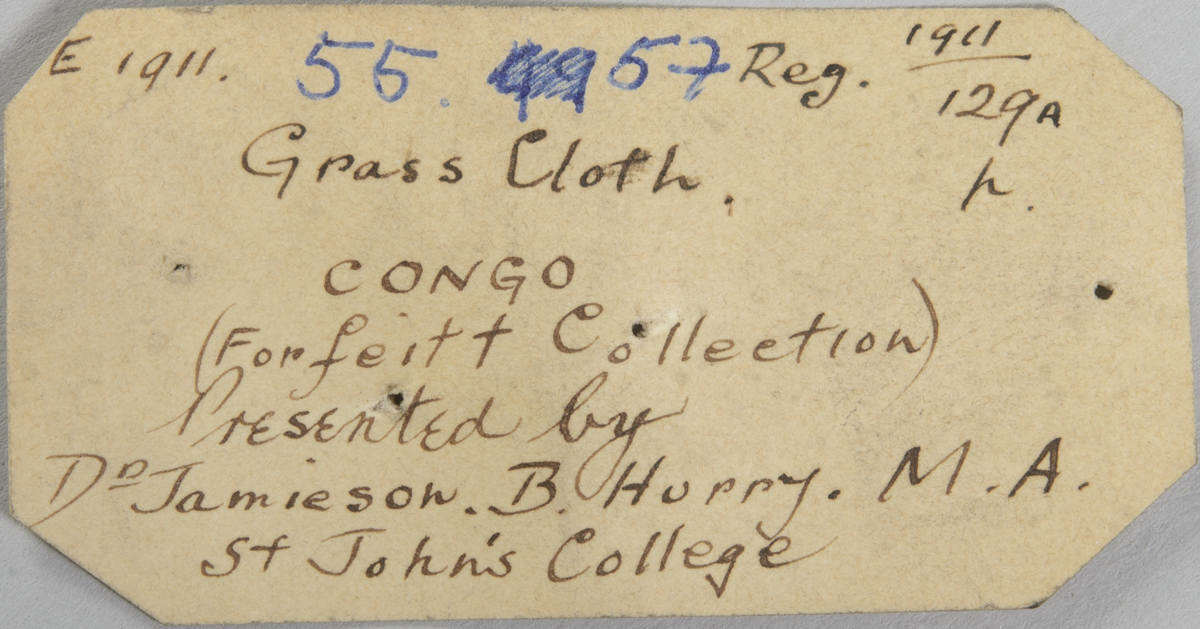 E 1911. 55. 57 Reg. 1911
129A
Grass Cloth. h.
CONGO
(Forfeitt Collection)
Presented by
Dr Jamieson. B. Hurry. M.A.
St John's College